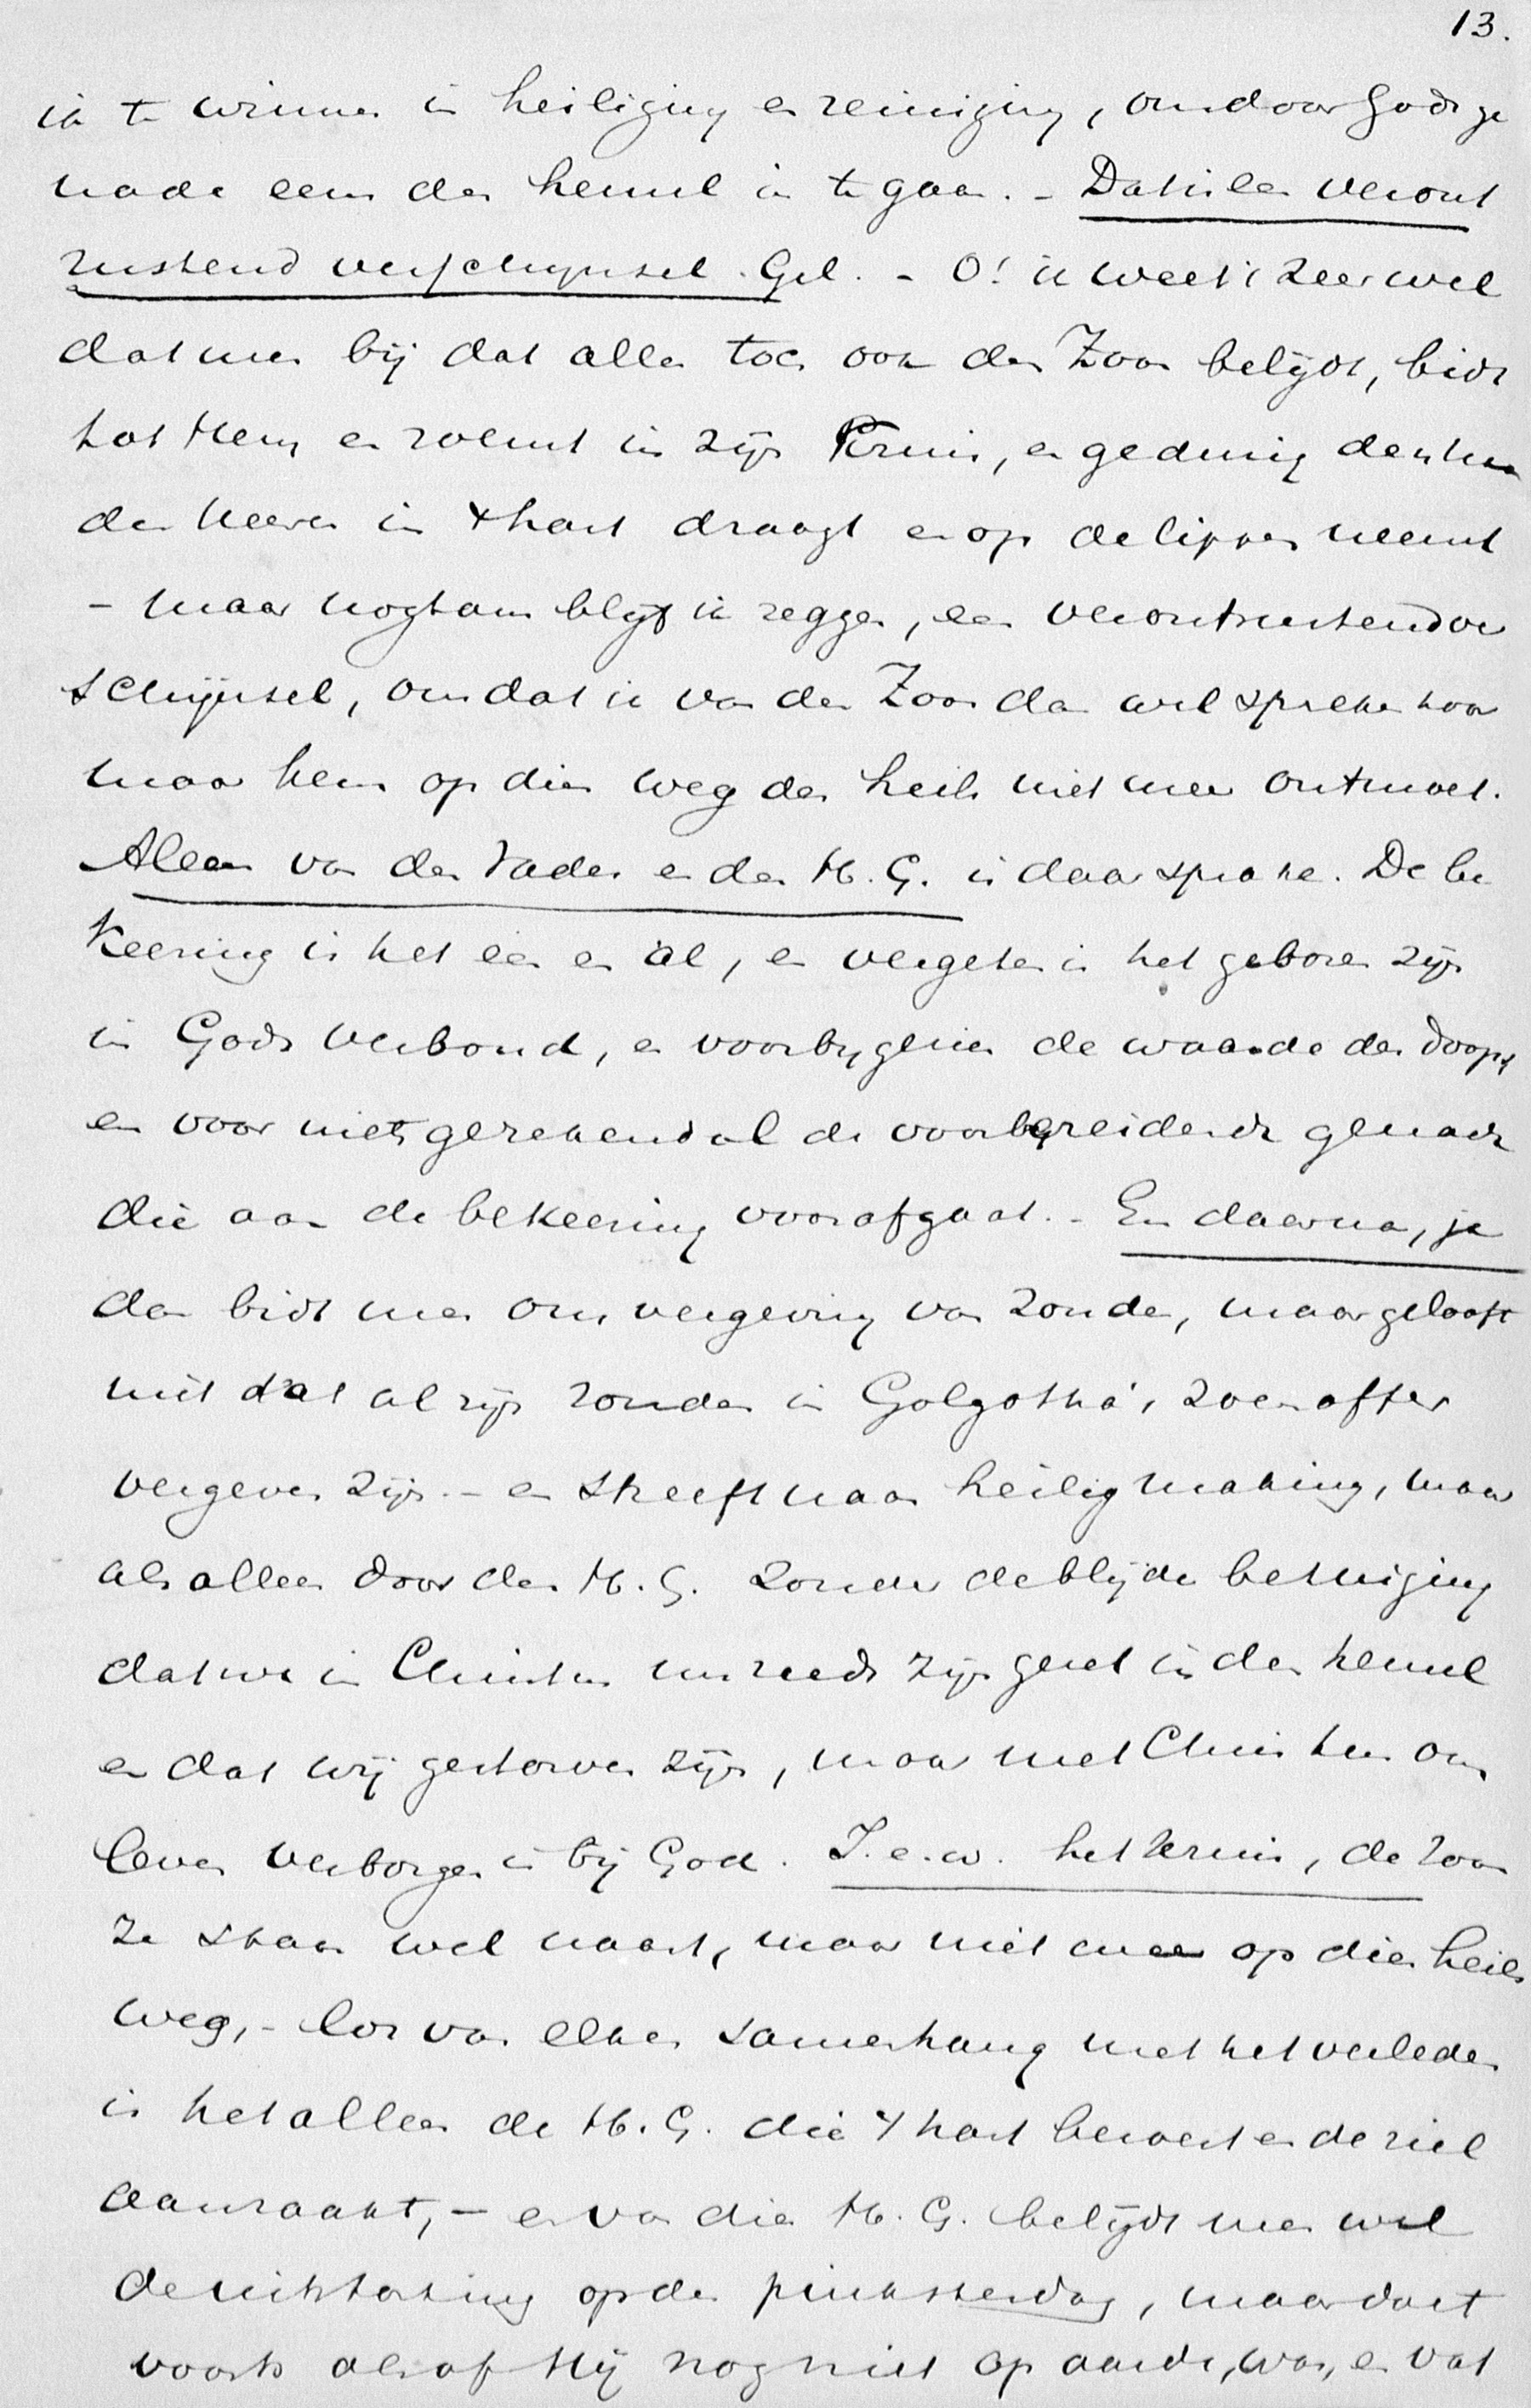 13.
in te winnen in heiliging en reiniging, om door Gods ge
nade eens den hemel in te gaan. - Dat is een veront
rustend verschijnsel. Gel. - O! ik weet 't zeer wel
dat men bij dat alles toch ook den Zoon belijdt, bidt
tot Hem en roemt in zijn Kruis, en gedurig den
den Heere in 't hart draagt en op de lippen neemt
- maar nogtans blijf ik zeggen, een verontrustend ver
schijnsel, omdat ik van den Zoon dan wel spreken hoor
maar hem op dien weg des heils niet meer ontmoet.
Alleen van den Vader en den H. G. is daar sprake. De be
keering is het een en al, en vergeten is het geboren zijn
in Gods Verbond, en voorbijgezien de waarde des doops,
en voor niets gerekend al de voorbereidende genade
die aan de bekeering voorafgaat. - En daarna, ja
dan bidt men om vergeving van zonde, maar gelooft
niet dat al zijn zonden in Golgotha's zoenoffer
vergeven zijn - en streeft naar heiligmaking, maar
als alleen door den H. G. zonder de blijde betuiging
dat we in Christus nu reeds zijn gezet in den hemel
en dat wij gestorven zijn, maar met Christus ons
leven verborgen is bij God. I. e. w. het Kruis, de Zoon
ze staan wel naast, maar niet meer op dien heils
weg, - los van elken samenhang met het verleden
is het alleen de H. G. die 't hart beroert en de ziel
aanraakt, - en van dien H. G. belijdt men wel
de uitstorting op den pinksterdag, maar doet
voorts alsof Hij nog niet op aarde was, en vat